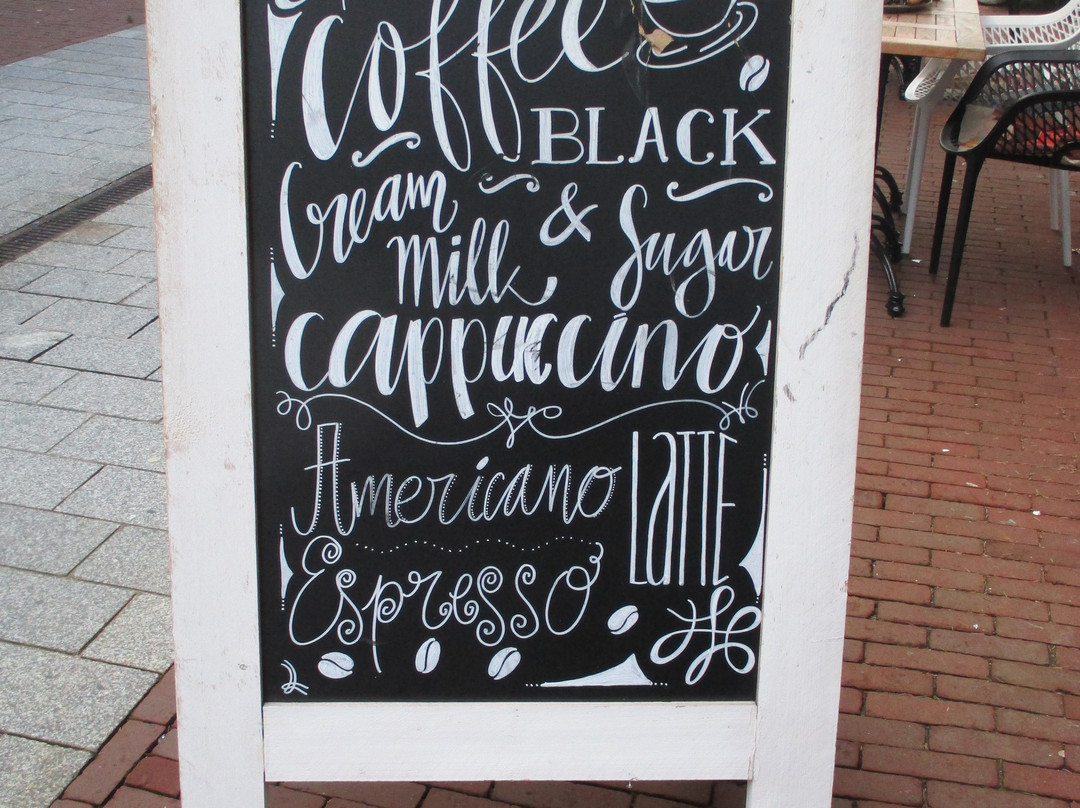 Coffee
BLACK
Cream & Sugar
Milk
Cappuccino
Americano LATTE
Espresso